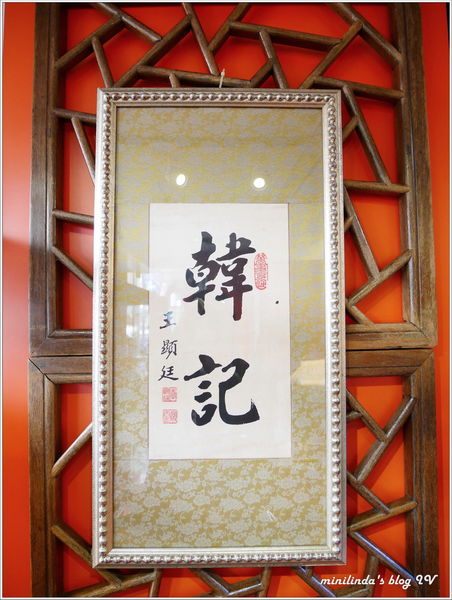 韓記
王顯廷
minilinda's blog IV